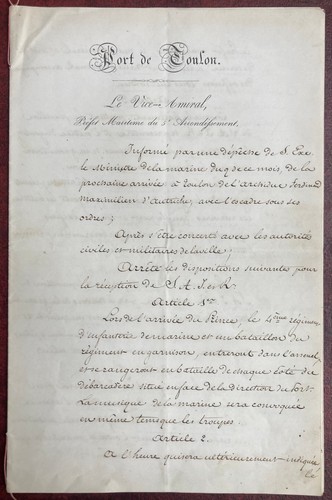 Port de Toulon.
Le Vice-Amiral,
Préfet Maritime du 5e Arrondissement,
Informé par une dépêche de S. Exe.
le Ministre de la marine du 9 de ce mois, de la
prochaine arrivée à Toulon de l'archiduc Ferdinand
maximilien d'Autriche, avec l'escadre sous ses
ordres;
Après s'être concerté avec les autorités
civiles et militaires de la ville;
Arrête les dispositions suivantes pour
la réception de S. A. I. et R.
Article 1er
Lors de l'arrivée du Prince, le 4ème régiment
d'infanterie de marine et un bataillon du
régiment en garnison, entreront dans l'arsenal
et se rangeront en bataille de chaque côté du
débarcadère situé en face de la direction du Port.
La musique de la marine sera convoquée
en même temps que les troupes.
Article 2.
A l'heure qui sera ultérieurement indiquée
le